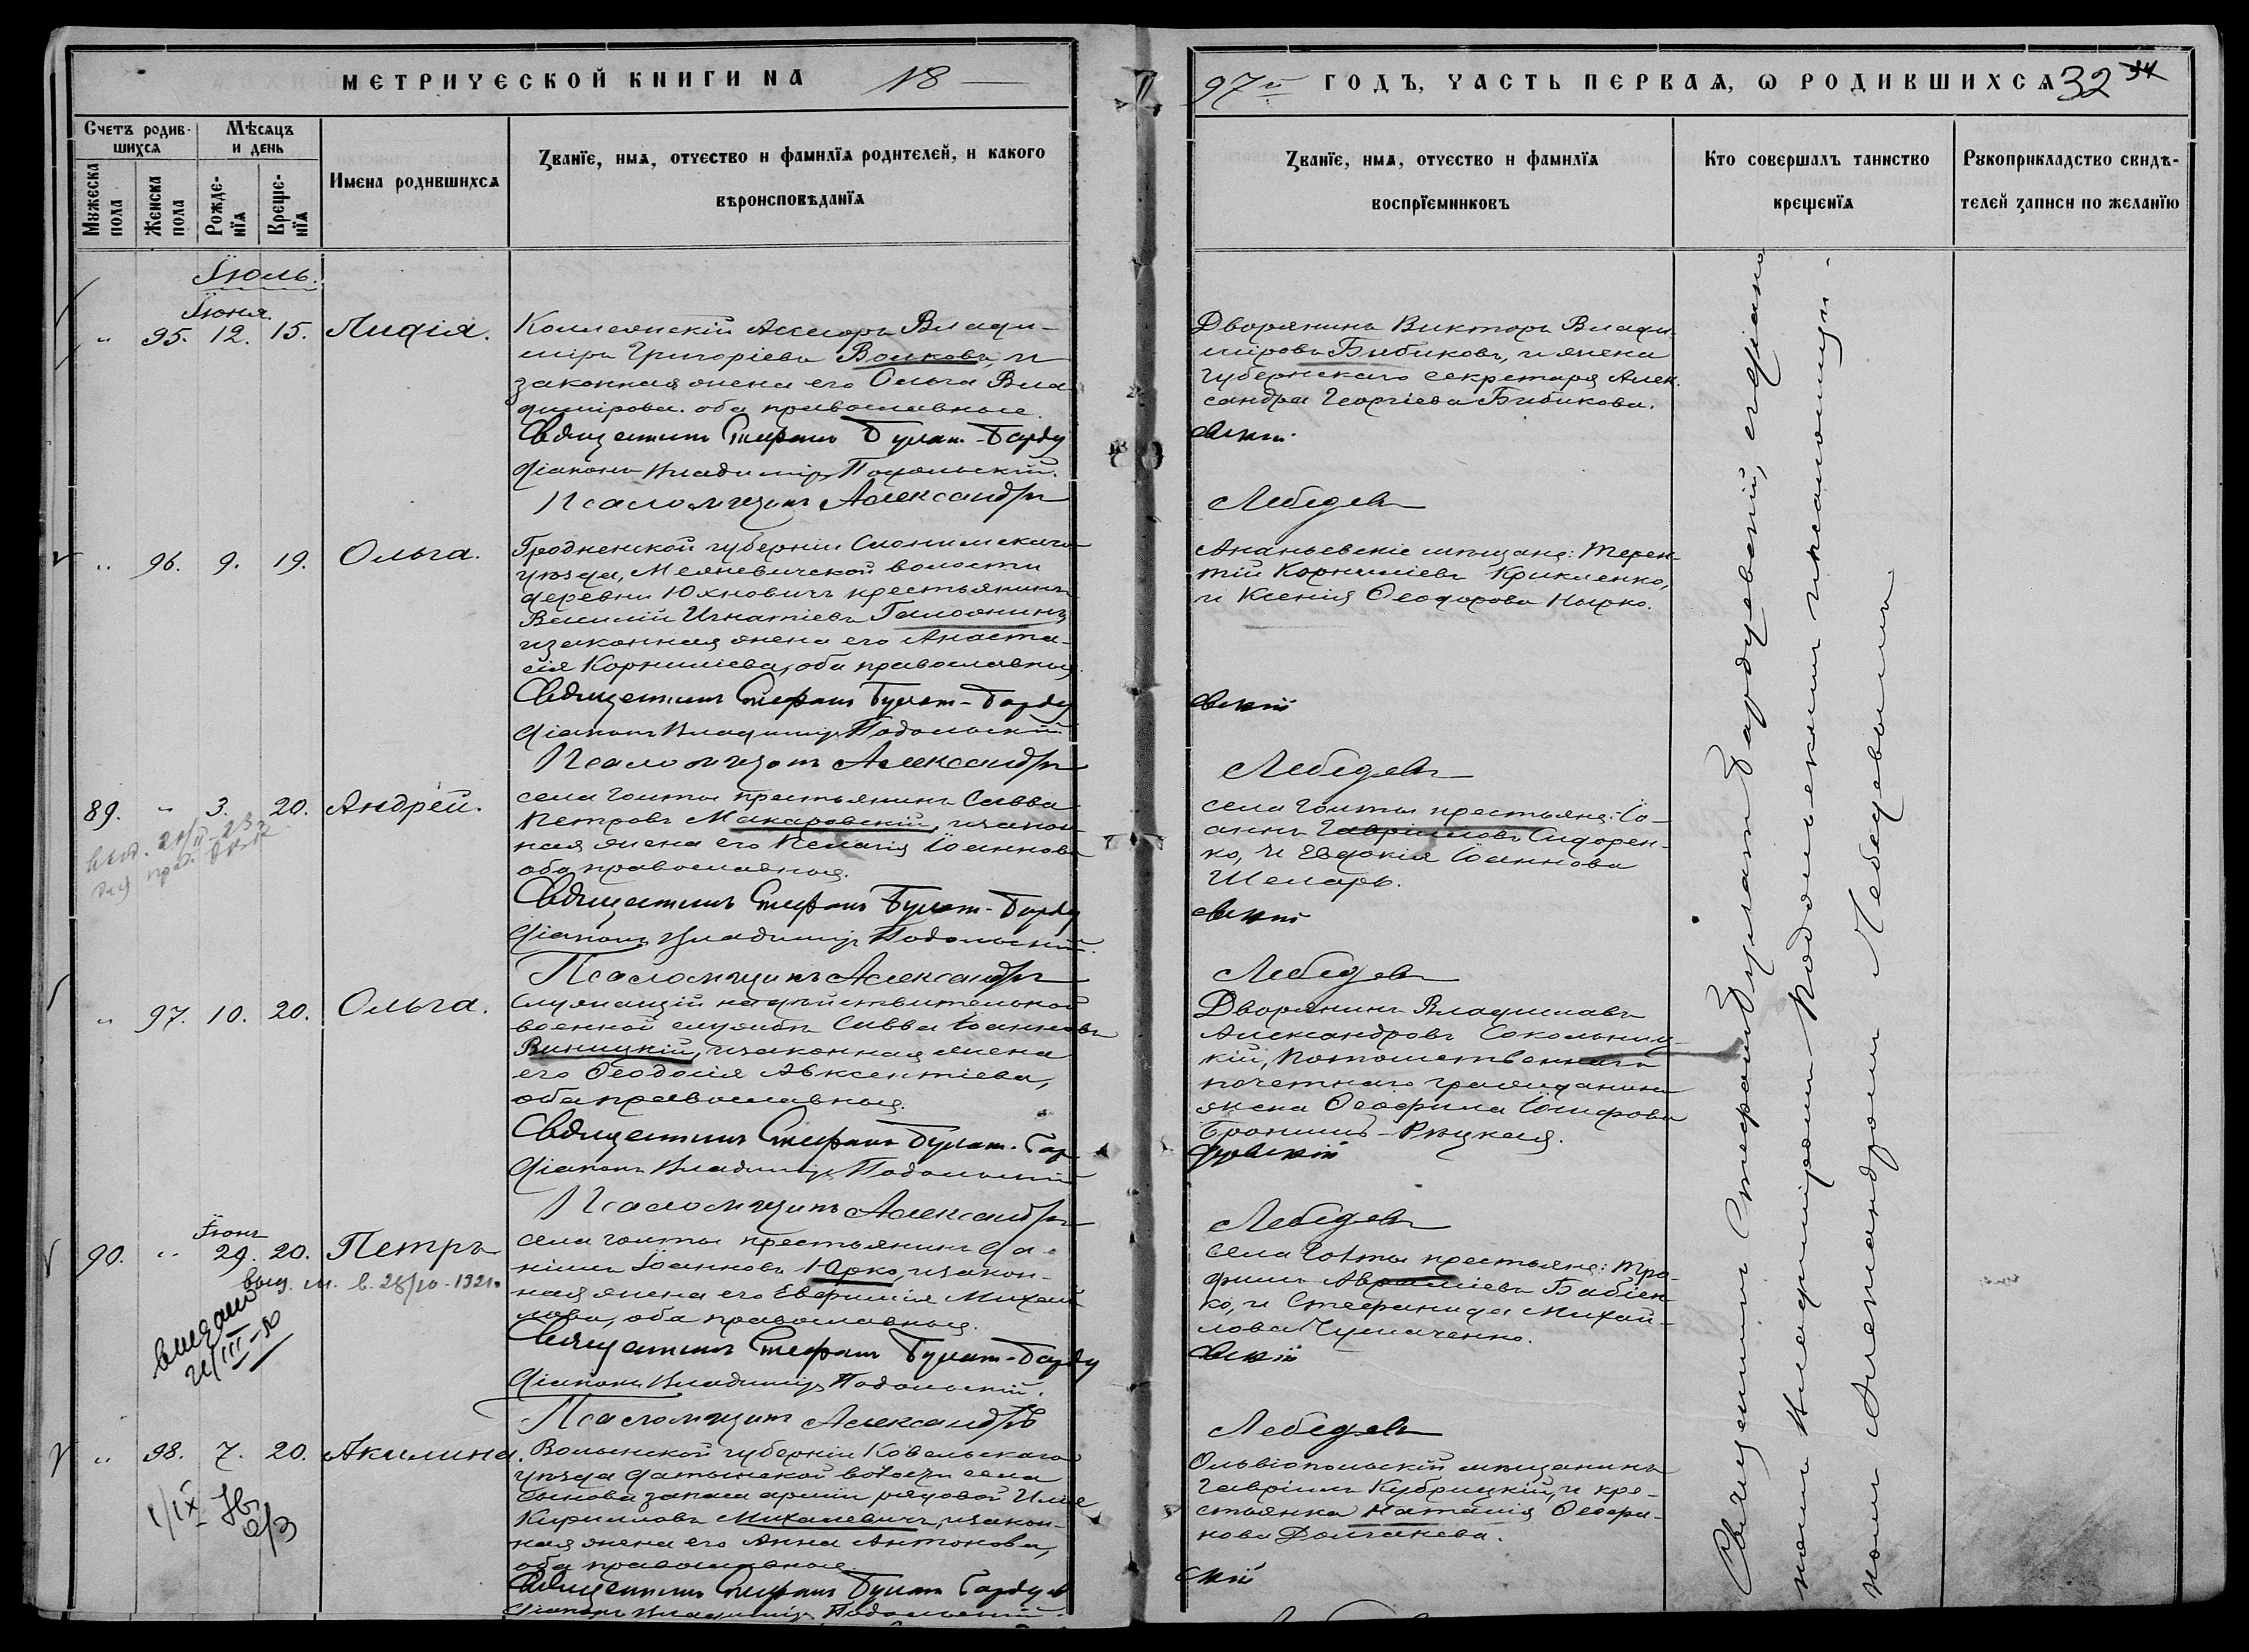 МЕТРИЧЕСКОЙ КНИГИ НА 18
97й ГОДЪ, ЧАСТЬ ПЕРВАЯ, Ѡ РОДИВШИХСЯ 32 34
Счетъ родив-
шихся
Мѣсяцъ
и день
Мужеска
пола
Женска
пола
Рожде-
нїя
Креще-
нїя
Имена родившихся
Званїе, имя, отчество и фамилїя родителей, и какого
вѣроисповѣданїя
Званїе, имя, отчество и фамилїя
воспрїемниковъ
Кто совершалъ таинство
крещенїя
Рукоприкладство свидѣ-
телей записи по желанїю
Іюль.
Іюня.
" 95. 12. 15. Лидія.
Коллежскій Ассесоръ Влади-
міръ Григоріевъ Волковъ, и
законная жена его Ольга Вла-
димірова. оба православные.
Священникъ Стефанъ Булат-Барду
Діаконъ Владиміръ Подольскій.
Псаломщикъ Александръ
Дворянинъ Викторъ Влади-
міровъ Бибиковъ, и жена
губернскаго секретаря Алек-
сандра Георгіева Бибикова.
евскій
Лебедевъ
" 96. 9. 19. Ольга.
Гродненской губерніи Слонимскаго
уѣзда, волости
деревни Юхновичъ крестьянинъ
Василій Игнатіевъ
и законная жена его Анаста-
сія Корниліева, оба православные.
Священникъ Стефанъ Булат-Барду
Діаконъ Владиміръ Подольскій
Псаломщикъ Александръ
Ананьевскіе мѣщане: Терен-
тій Корниліевъ Крикленко,
и Ксенія Ѳеодорова Нырко.
евскій
Лебедевъ
89. " 3. 20. Андрей.
села Голты крестьянинъ Савва
Петровъ Макаровскій, и закон-
ная жена его Пелагія Іоаннова
оба православные.
Священникъ Стефанъ Булат-Барду
Діаконъ Владиміръ Подольскій.
Псаломщикъ Александръ
села Голты крестьяне: Іо-
аннъ Гавриловъ Сидорен-
ко, и Евдокія Іоаннова
Шеларь.
евскій
Лебедевъ
" 97. 10. 20. Ольга.
Служащій на дѣйствительной
военной службѣ Савва Іоанновъ
Виницкій, и законная жена
его Ѳеодосія Авксентіева,
оба православные.
Священникъ Стефанъ Булат-Бар
Діаконъ Владиміръ Подольскій
Псаломщикъ Александръ
Дворянинъ Владиславъ
Александровъ Сокольниц-
кій, потомственнаго
почетнаго гражданина
жена Ѳеофила Іосифова
дуевскій
Лебедевъ
Іюнь
90. " 29. 20. Петръ
села Голты крестьянинъ Да-
ніилъ Іоанновъ Юрко, и закон-
ная жена его Евфимія Михай-
лова, оба православные.
Священникъ Стефанъ Булат-Барду
Діаконъ Владиміръ Подольскій.
Псаломщикъ Александръ
села Голты крестьяне: Тро-
фимъ Авраміевъ Бабіен-
ко, и Стефанида Михай-
лова Чумаченко.
евскій
Лебедевъ
" 98. 7. 20. Акилина.
Волынской губерніи Ковельскаго
уѣзда Датынской волости села
запаса арміи рядовой Илія
Кирилловъ Михалевичъ, и закон-
ная жена его Анна Антонова,
оба православные.
Священникъ Стефанъ Булат Бардуев
Діаконъ Владиміръ Подольскій.
Ольвіопольскій мѣщанинъ
Гавріилъ Кубрицкій, и кре-
стьянка Наталія Ѳеофа-
нова
скій
Священникъ Стефанъ Булатъ Бардуевскій, съ діако-
номъ Владиміромъ Подольскимъ и псаломщи-
комъ Александромъ Лебедевымъ